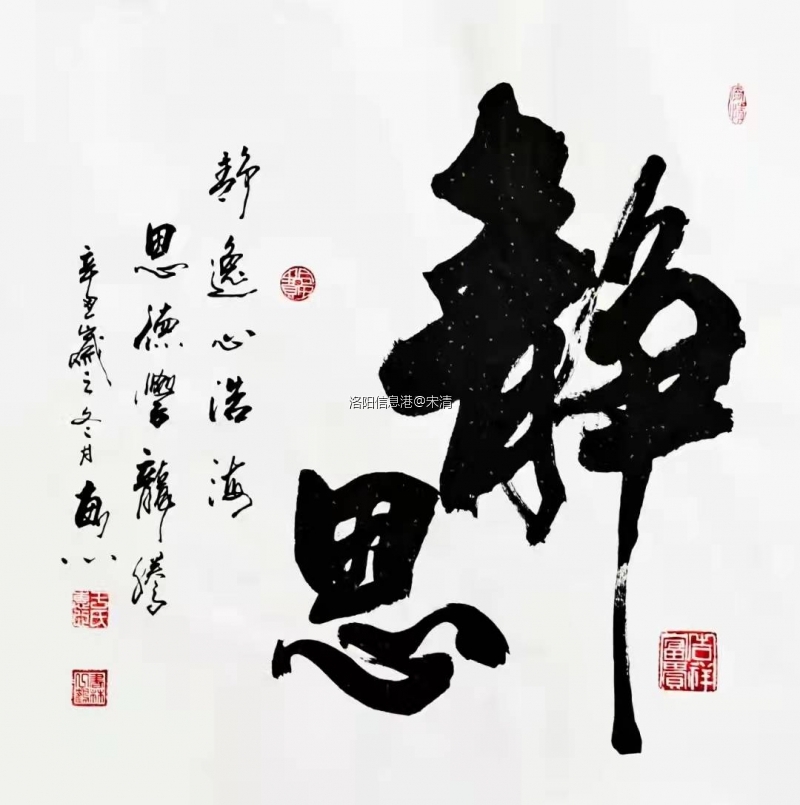 静思
静逸心浩海
思德學龍騰
辛丑歲之冬月
吉祥富貴
洛阳信息港@宋清